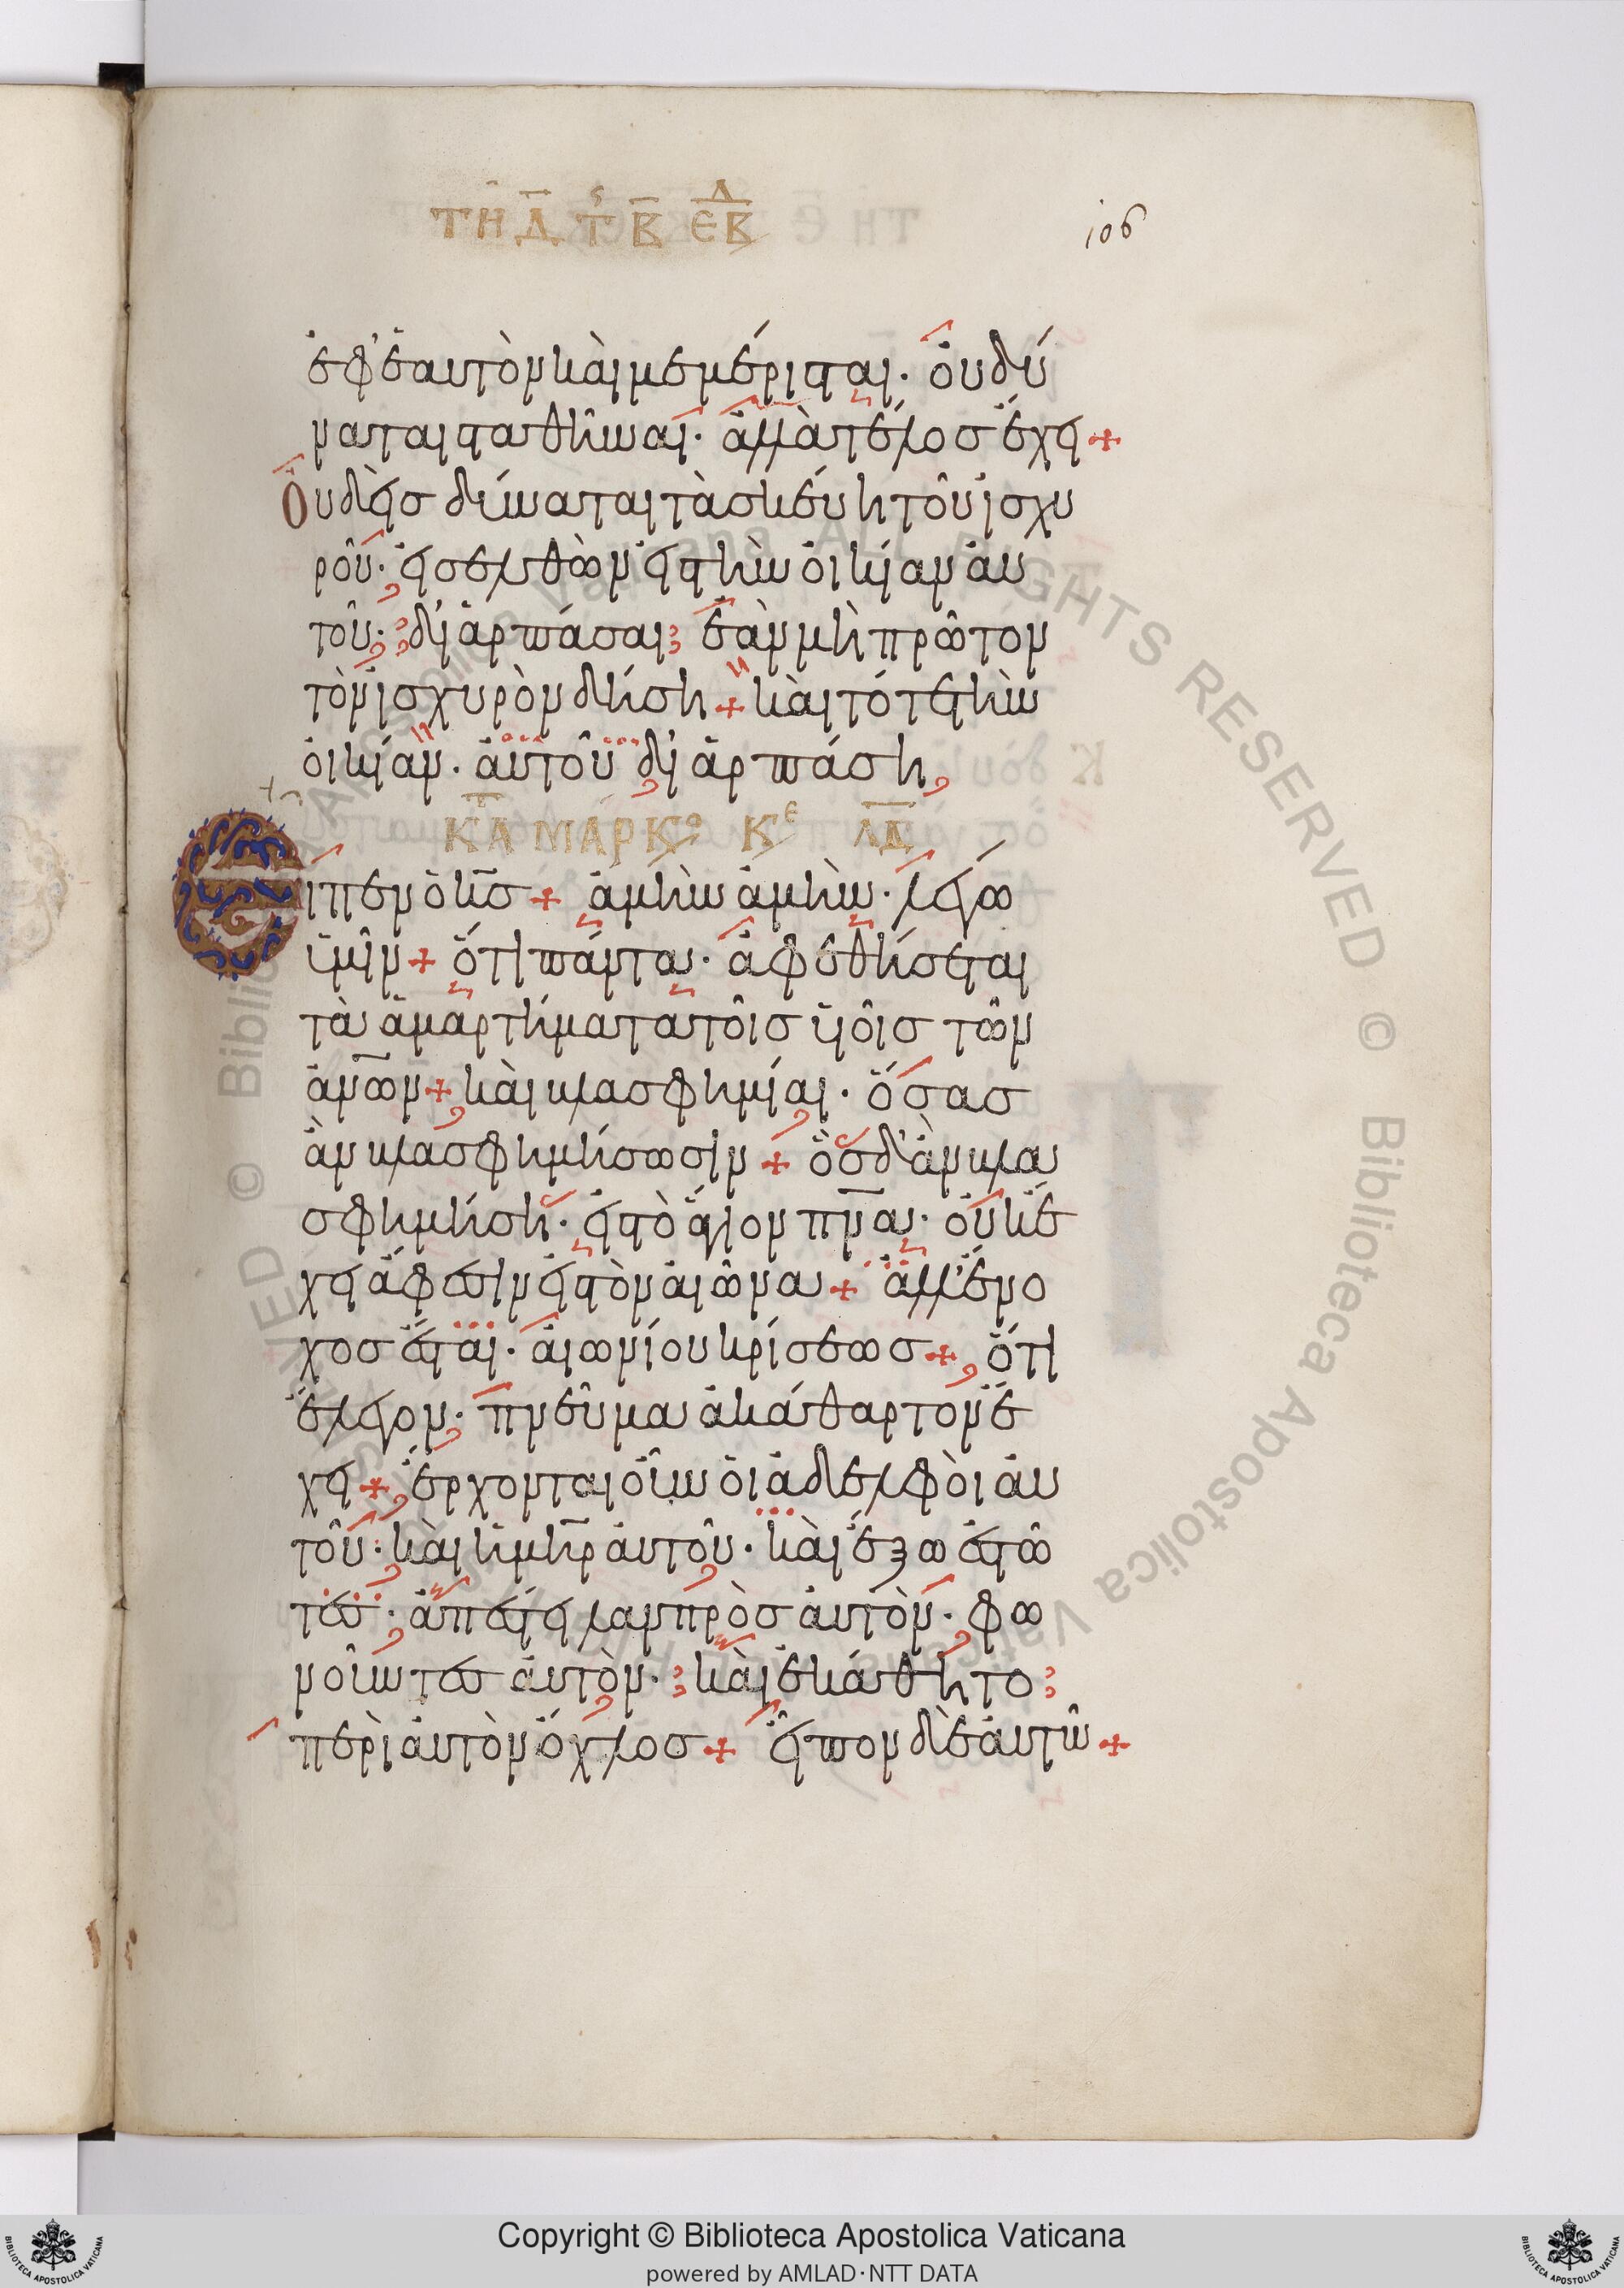 ΤΗ Δ Τς Β ΕΒΔ
106
ἐφ' ἑαυτὸν καὶ μεμέρισται· οὐ δύ
ναται σταθῆναι· ἀλλὰ τέλος ἔχει +
Οὐδεὶς δύναται τὰ σκεύη τοῦ ἰσχυ
ροῦ· εἰσελθὼν εἰς τὴν οἰκίαν αὐ
τοῦ· διαρπάσαι· ἐὰν μὴ πρῶτον
τὸν ἰσχυρὸν δήσῃ + καὶ τότε τὴν
οἰκίαν· αὐτοῦ διαρπάσῃ
ΚΑΤ ΜΑΡΚο Κε ΛΔ
Εἶπεν ὁ κς + ἀμὴν ἀμὴν· λέγω
ὑμῖν + ὅτι πάντα· ἀφεθήσεται
τὰ ἁμαρτήματα τοῖς υἱοῖς τῶν
ανων + καὶ βλασφημίαι· ὅσας
ἂν βλασφημήσωσιν + ὃς δ' ἂν βλα
σφημήσῃ· εἰς τὸ ἅγιον πνα· οὐκ ἔ
χει ἄφεσιν εἰς τὸν αἰῶνα + ἀλλ' ἔνο
χος ἔσται· αἰωνίου κρίσεως + ὅτι
ἔλεγον· πνεῦμα ἀκάθαρτον ἔ
χει + ἔρχονται οὖν οἱ ἀδελφοὶ αὐ
τοῦ· καὶ ἡ μηρ αὐτοῦ· καὶ ἔξω ἑστῶ
τες· ἀπέστειλαν πρὸς αὐτὸν· φω
νοῦντες αὐτὸν· καὶ ἐκάθητο
περὶ αὐτὸν ὄχλος + εἶπον δὲ αὐτῷ +
Copyright © Biblioteca Apostolica Vaticana
powered by AMLAD·NTT DATA